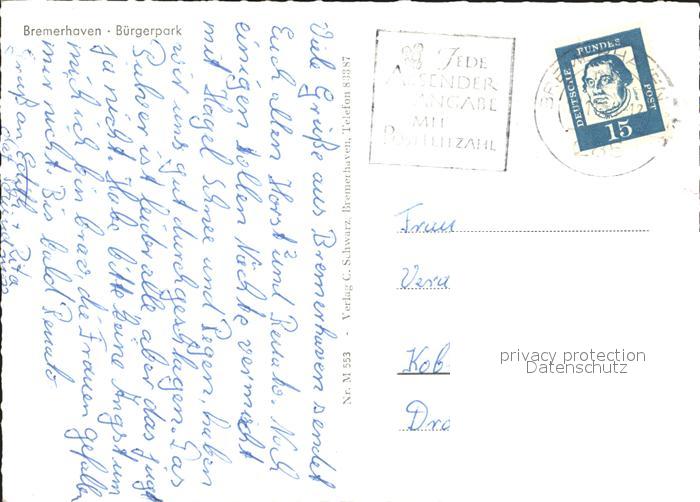 Bremerhaven · Bürgerpark
Viele Grüße aus Bremerhaven sendet
Euch allen Horst und Renate. Nach
einigen tollen Nächte vermischt
mit Hagel Schnee und Regen, haben
wir uns gut durchgeschlagen. Das
Pulver ist leider alle aber das sagt
ja nicht. Habe bitte keine Angst um
mich ich bin brav, die Frauen gefallen
mir nicht. Bis bald Renate
Gruß an Edith + Rita
Nr. M 553 - Verlag C. Schwarz, Bremerhaven, Telefon 83887
JEDE
ABSENDER
ANGABE
MIT
POSTLEITZAHL
DEUTSCHE BUNDESPOST
15
Frau
Vera
Kob
Dra
privacy protection
Datenschutz